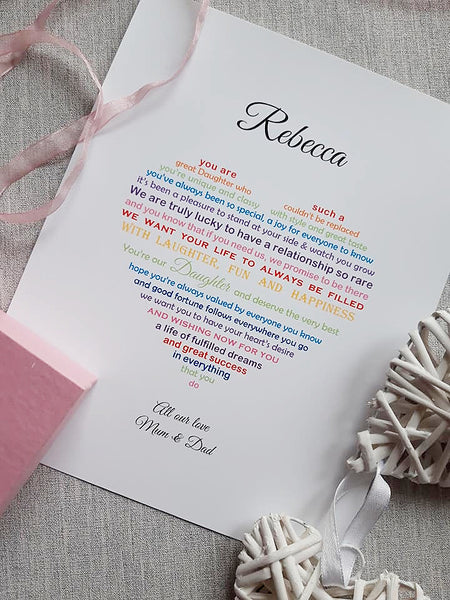 Rebecca
you are such a
great Daughter who couldn't be replaced
you're unique and classy with style and great taste
you've always been so special, a joy for everyone to know
it's been a pleasure to stand at your side & watch you grow
We are truly lucky to have a relationship so rare
and you know that if you need us, we promise to be there
WE WANT YOUR LIFE TO ALWAYS BE FILLED
WITH LAUGHTER, FUN AND HAPPINESS
You're our Daughter and deserve the very best
hope you're always valued by everyone you know
and good fortune follows everywhere you go
we want you to have your heart's desire
AND WISHING NOW FOR YOU
a life of fulfilled dreams
and great success
in everything
that you
do
All our love
Mum & Dad